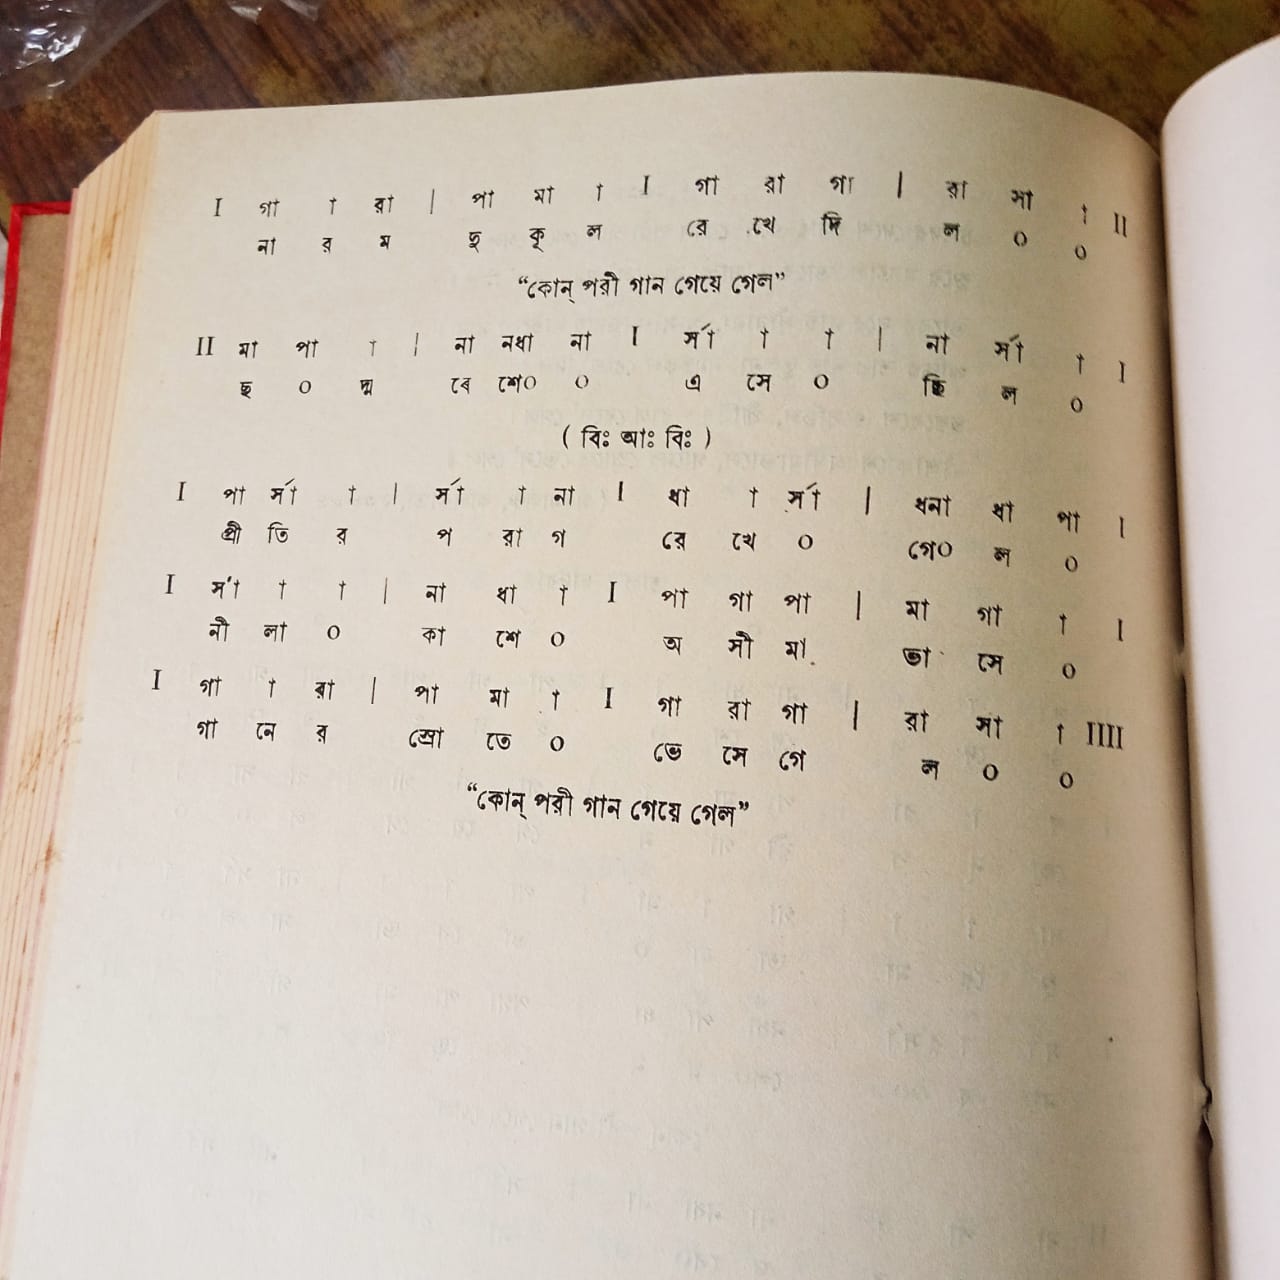 I গা া রা | পা মা া I গা রা গা | রা সা া II
না র ম দু কূ ল রে খে দি ল ০ ০
“কোন্ পরী গান গেয়ে গেল”
II মা পা া | না নধা না I র্সা া া | না র্সা া I
ছ ০ দ্ম বে শে০ ০ এ সে ০ ছি ল ০
( বিঃ আঃ বিঃ )
I পা র্সা া | র্সা া না I ধা া র্সা | ধনা ধা পা I
প্রী তি র প রা গ রে খে ০ গে০ ল ০
I র্সা া া | না ধা া I পা গা পা | মা গা া I
নী লা ০ কা শে ০ অ সী মা ভা সে ০
I গা া রা | পা মা া I গা রা গা | রা সা া IIII
গা নে র স্রো তে ০ ভে সে গে ল ০ ০
“কোন্ পরী গান গেয়ে গেল”